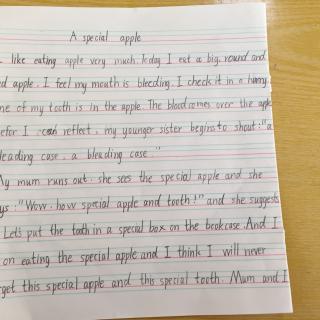 A special apple
I like eating apple very much. Today I eat a big, round and
ed apple. I feel my mouth is bleeding. I check it in a hurry.
ne of my tooth is in the apple. The blood comes over the apple
efor I can reflect, my younger sister begins to shout: "a
leading case, a bleading case."
My mum runs out. she sees the special apple and she
ys: "Wow. how special apple and tooth!" and she suggests
Lets put the tooth in a special box on the bookcase. And I
on eating the special apple and I think I will never
rget this special apple and this special tooth. Mum and I